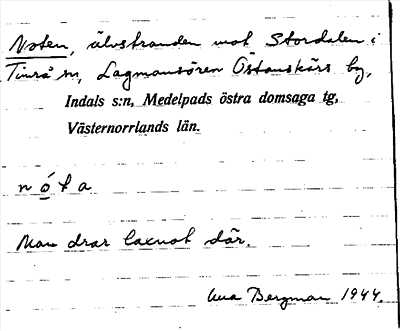 Noten, älvstranden mot Stordalen i
Timrå sn, Lagmansören Östanskärs by,
Indals s:n, Medelpads östra domsaga tg,
Västernorrlands län.
nóta
Man drar laxnot där.
Bergman 1944.